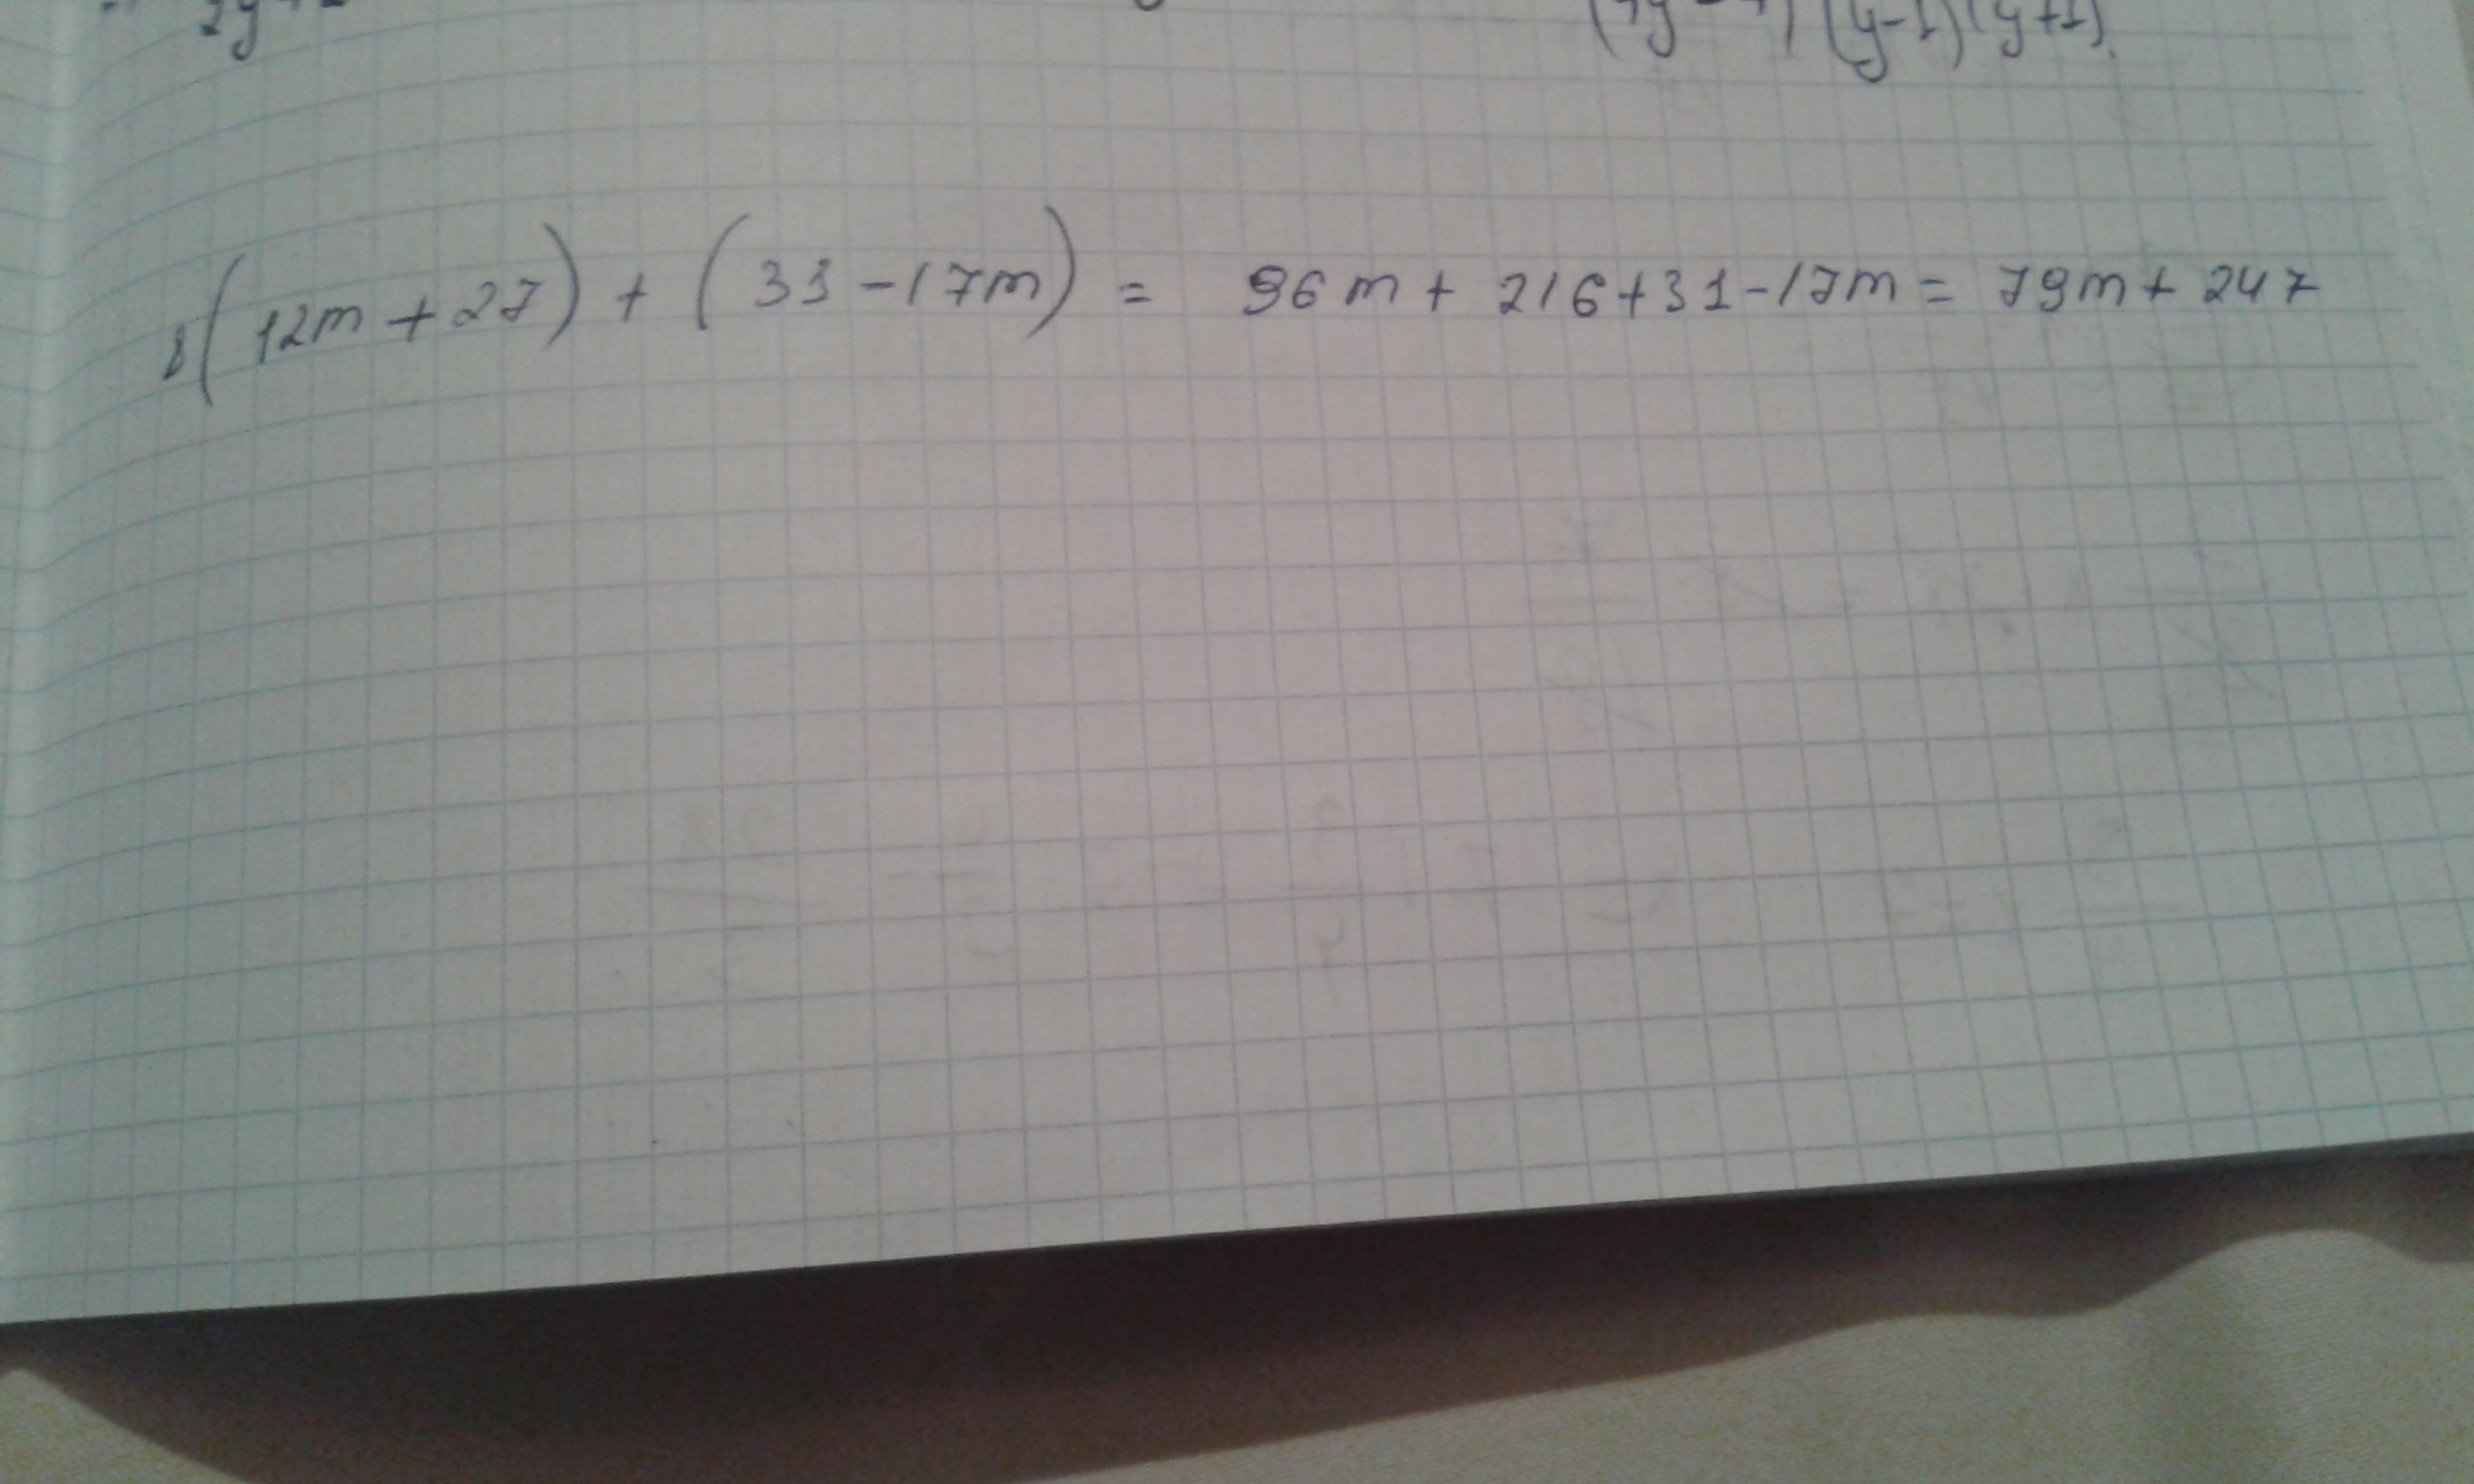 2y+
(y-1)(y+1).
8(12m+27)+(31-17m)= 96m+216+31-17m=79m+247